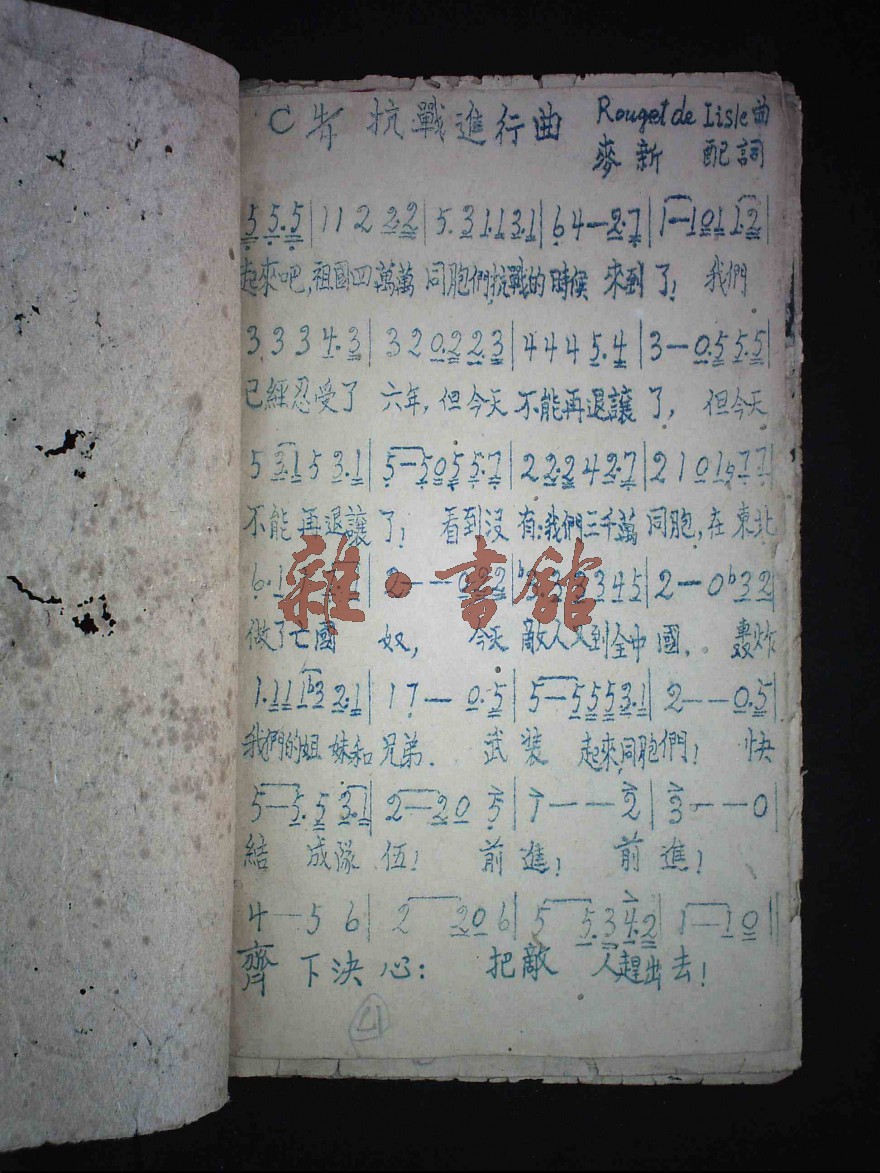 C 4/4 抗戰進行曲 Rouget de Lisle曲
麥新 配詞
5 5.5|1 1 2 2.2|5.3 1.1 3.1|6 4—2.7|1—1 0 1 1.2|
起來吧,祖國四萬萬 同胞們抗戰的時候 來到了! 我們
3 3 3 4.3|3 2 0.2 2.3|4 4 4 5.4|3—0.5 5.5|
已經忍受了 六年,但今天 不能再退讓了, 但今天
5 3.1 5 3.1|5—5 0 5 5.7|2 2.2 4 2.7|2 1 0 1 7 7|
不能再退讓了! 看到沒有:我們三千萬同胞,在東北
2——0 2 2|♭3.3 3 3 4 5|2—0 ♭3 2|
做了亡國 奴, 今天 敵人又到全中國. 轟炸
1.1 1 1 ♭3 2.1|1 7—0.5|5—5 5 5 3.1|2——0.5|
我們的姐妹和兄弟. 武裝 起來,同胞們! 快
5—5.5 3.1|2—2 0 5|1———2|3———0|
結 成隊伍! 前進! 前進!
4—5 6|2 2 0 6|5 5.3 4.2|1—1 0|
齊 下決心: 把敵 人趕出去!
21
雜·書館